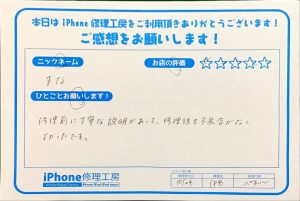 本日は iPhone 修理工房をご利用頂きありがとうございます!
ご感想をお願いします!
ニックネーム
お店の評価 ☆☆☆☆☆
まな
ひとことお願いします!
修理前に丁寧な説明があって、修理後も不具合がなく
よかったです。
iPhone修理工房
10/24